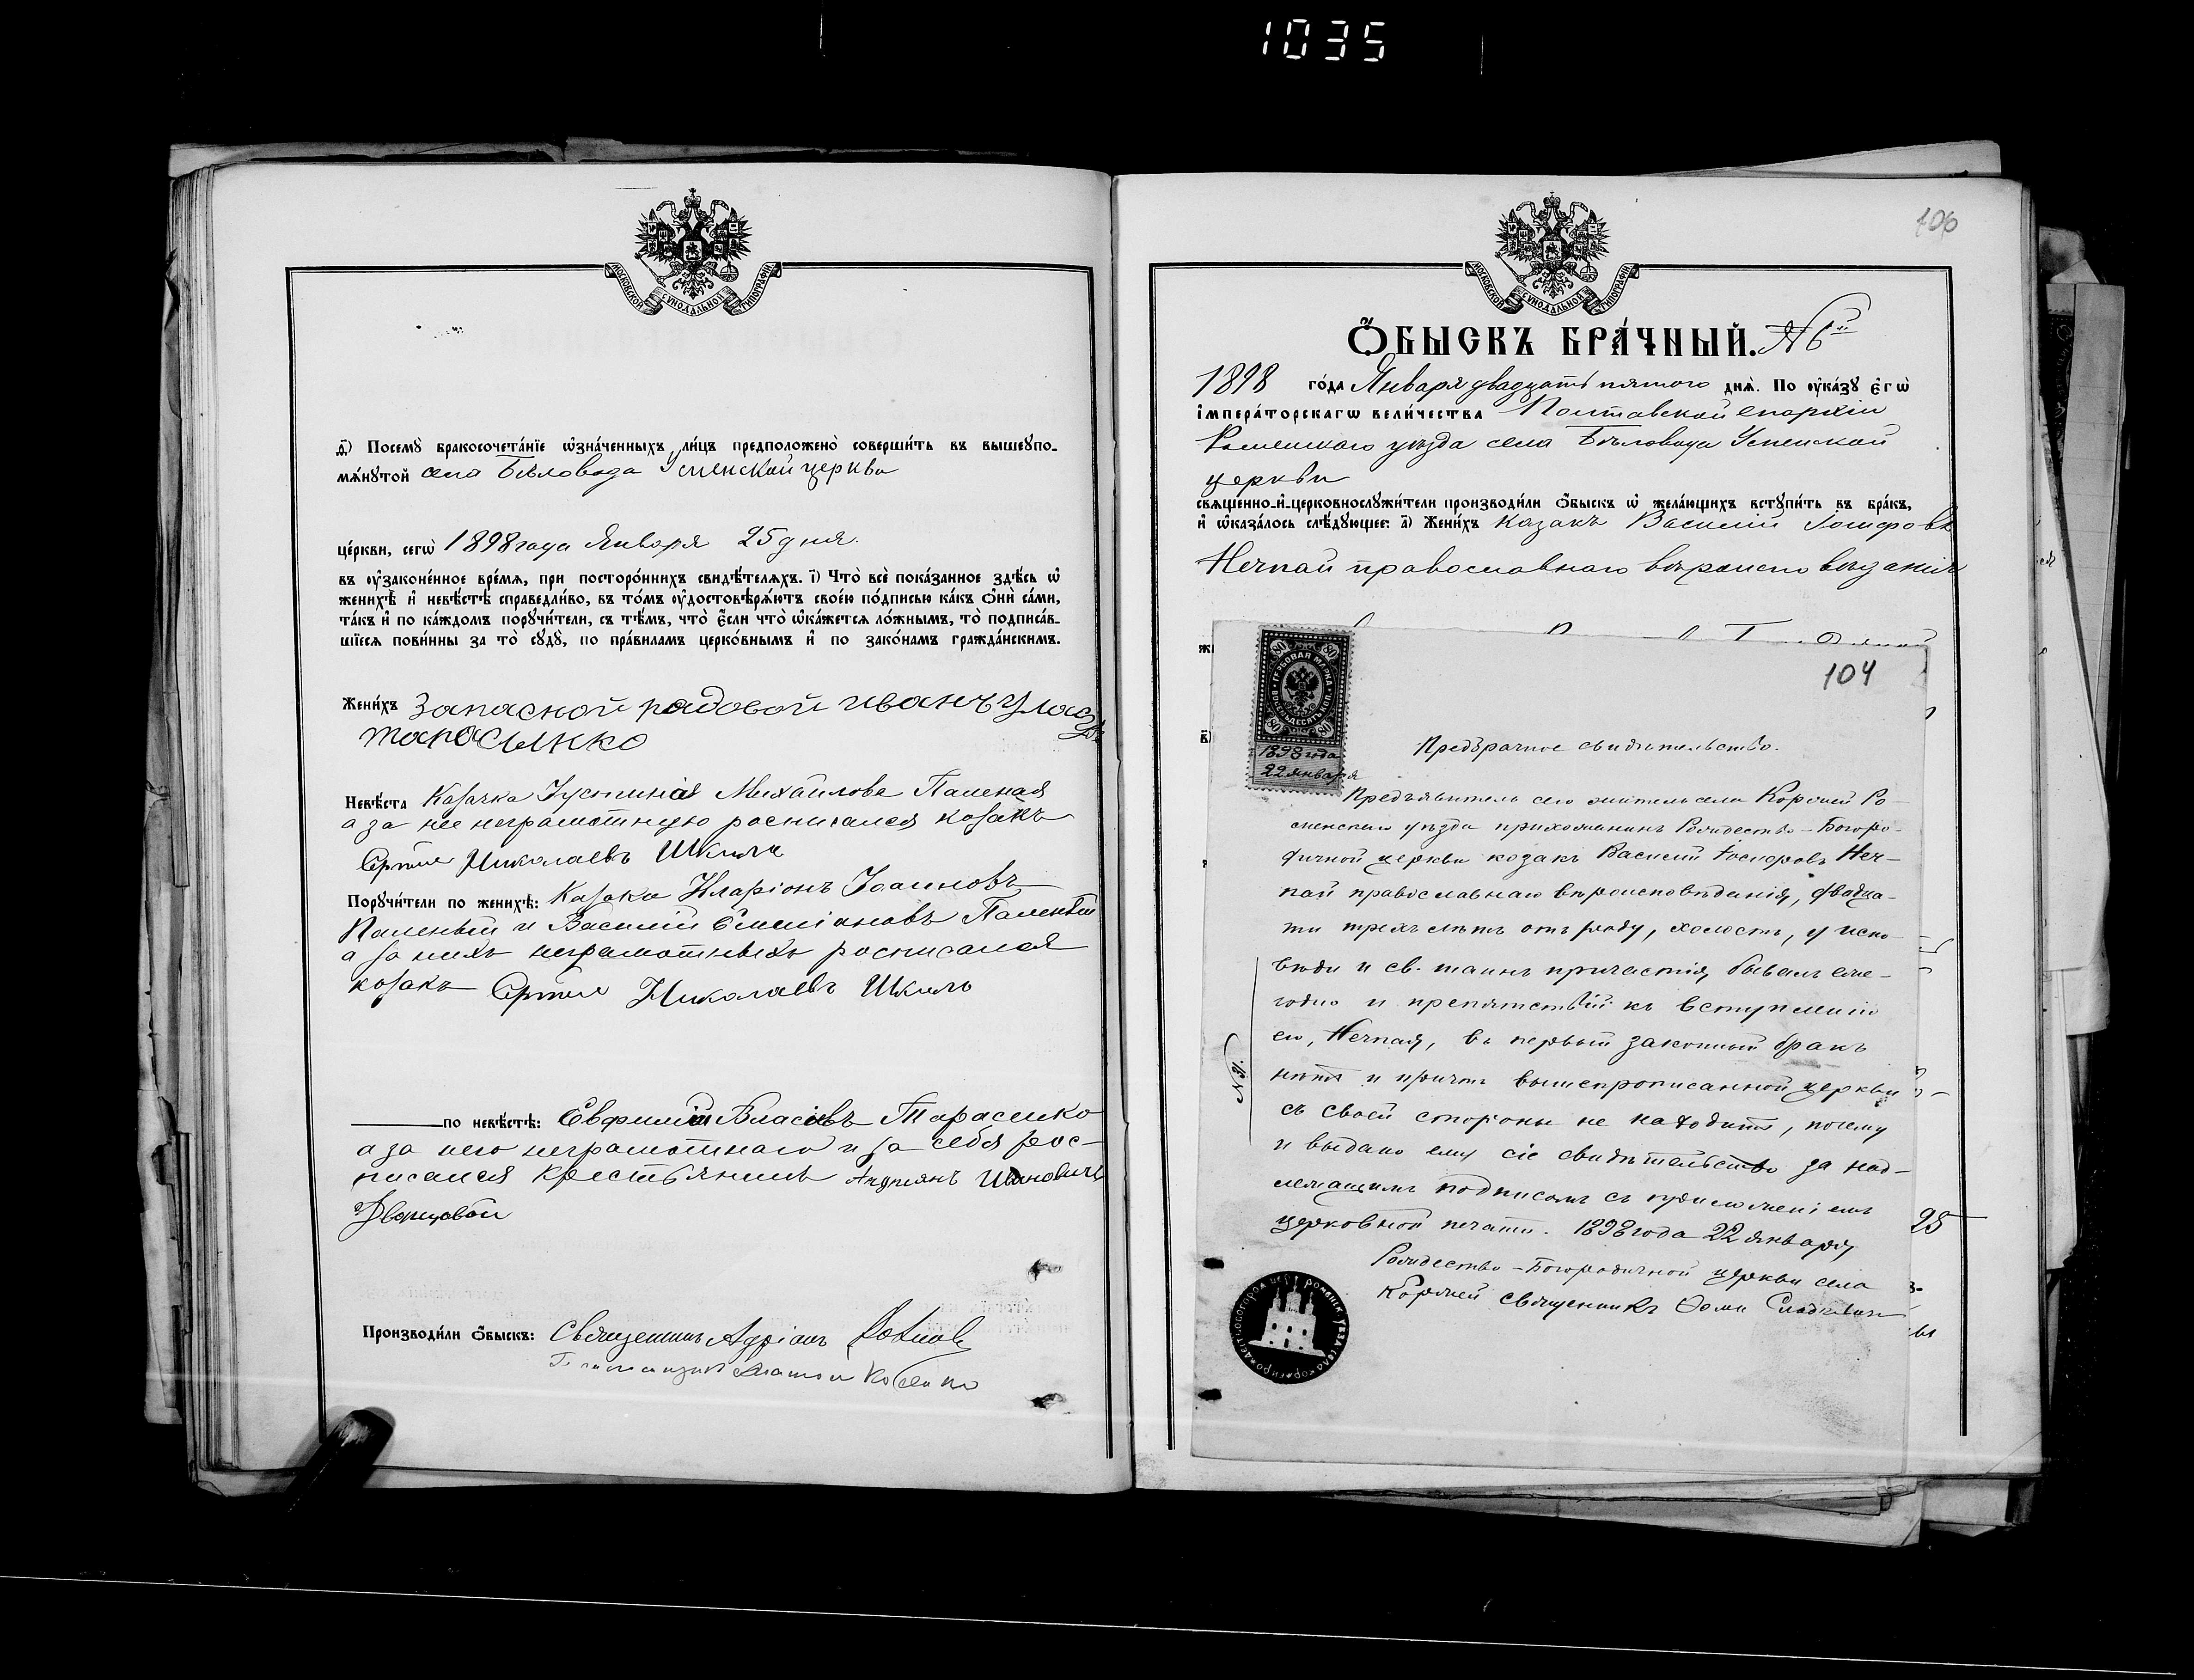 1035
МОСКОВСКОЙ СУНОДАЛЬНОЙ ТИПОГРАФІИ
д҃) Посемꙋ бракосочета́нїе ѡ҆зна́ченныхъ ли́цъ предположено̀ соверши́ть въ вышеꙋпо-
мѧ́нꙋтой села Бѣловода Успенской церкви
це́ркви, сегѡ̀ 1898 года Января 25 дня.
въ ᲂу҆законе́нное вре́мѧ, при посторо́ннихъ свидѣ́телѧхъ. і҃) Что̀ всѐ пока́занное здѣ́сь ѡ҆
женихѣ̀ и҆ невѣ́стѣ справедли́во, въ то́мъ ᲂу҆достовѣрѧ́ютъ свое́ю по́дписью ка́къ ѻ҆нѝ са́ми,
та́къ и҆ по ка́ждомъ порꙋчи́тели, съ тѣ́мъ, что̀ є҆́сли что̀ ѡ҆ка́жетсѧ ло́жнымъ, то̀ подписа́в-
шїесѧ пови́нны за то̀ сꙋдꙋ̀, по пра́виламъ церко́внымъ и҆ по зако́намъ гражда́нскимъ.
Жени́хъ запасной рядовой иванъ
тарасенко
Невѣ́ста Козачка Іустинія Михайлова Паленая
а за нее неграмотную росписался козакъ
Сергѣй Николаевъ Шкиль
Порꙋчи́тели по женихѣ̀: Козаки Иларіонъ Іоанновъ
Паленый и Василій Емеліановъ Паленый
а за нихъ неграмотныхъ росписался
козакъ Сергѣй Николаевъ Шкиль
по невѣ́стѣ: Евфимій Власовъ Тарасенко
а за него неграмотнаго и за себя рос-
писался крестьянинъ Андріянъ Ивановичъ
Дворцовой
Производи́ли ѻ҆́быскъ: Священникъ Адріанъ
106
МОСКОВСКОЙ СУНОДАЛЬНОЙ ТИПОГРАФІИ
Ѻ҆́БЫСКЪ БРА́ЧНЫЙ. № 6й
1898 го́да Января двадцать пятого днѧ̀. По ᲂу҆ка́зꙋ є҆гѡ̀
і҆мпера́торскагѡ вели́чества Полтавской епархіи
Роменскаго уѣзда села Бѣловода Успенской
церкви
свѧще́нно-и҆-церковнослꙋжи́тели производи́ли ѻ҆́быскъ ѡ҆ жела́ющихъ встꙋпи́ть въ бра́къ,
и҆ ѡ҆каза́лось слѣ́дꙋющее: а҃) Жени́хъ козакъ Василій Іосифовъ
Нечпай православнаго вѣроисповѣданія
104
ГЕРБОВАЯ МАРКА ВОСЕМЬДЕСЯТЪ КОП.
80 80 80 80
1898 года
22 января
Предбрачное свидѣтельство.
Предъявитель сего житель села Коржей Ро-
менскаго уѣзда прихожанинъ Рождество-Богоро-
дичной церкви козакъ Василій Іосифовъ Неч-
пай православнаго вѣроисповѣданія, двадца-
ти трехъ лѣтъ отъ роду, холостъ, у испо-
вѣди и св. таинъ причастія, бывалъ еже-
годно и препятствій къ вступленію
его, Нечпая, въ первый законный бракъ
нѣтъ и причтъ вышепрописанной церкви
съ своей стороны не находитъ, почему
и выдано ему сіе свидѣтельство за над-
лежащимъ подписомъ съ приложеніемъ
церковной печати. 1898 года 22 января
Рождество-Богородичной церкви села
Коржей священникъ Ѳома
25